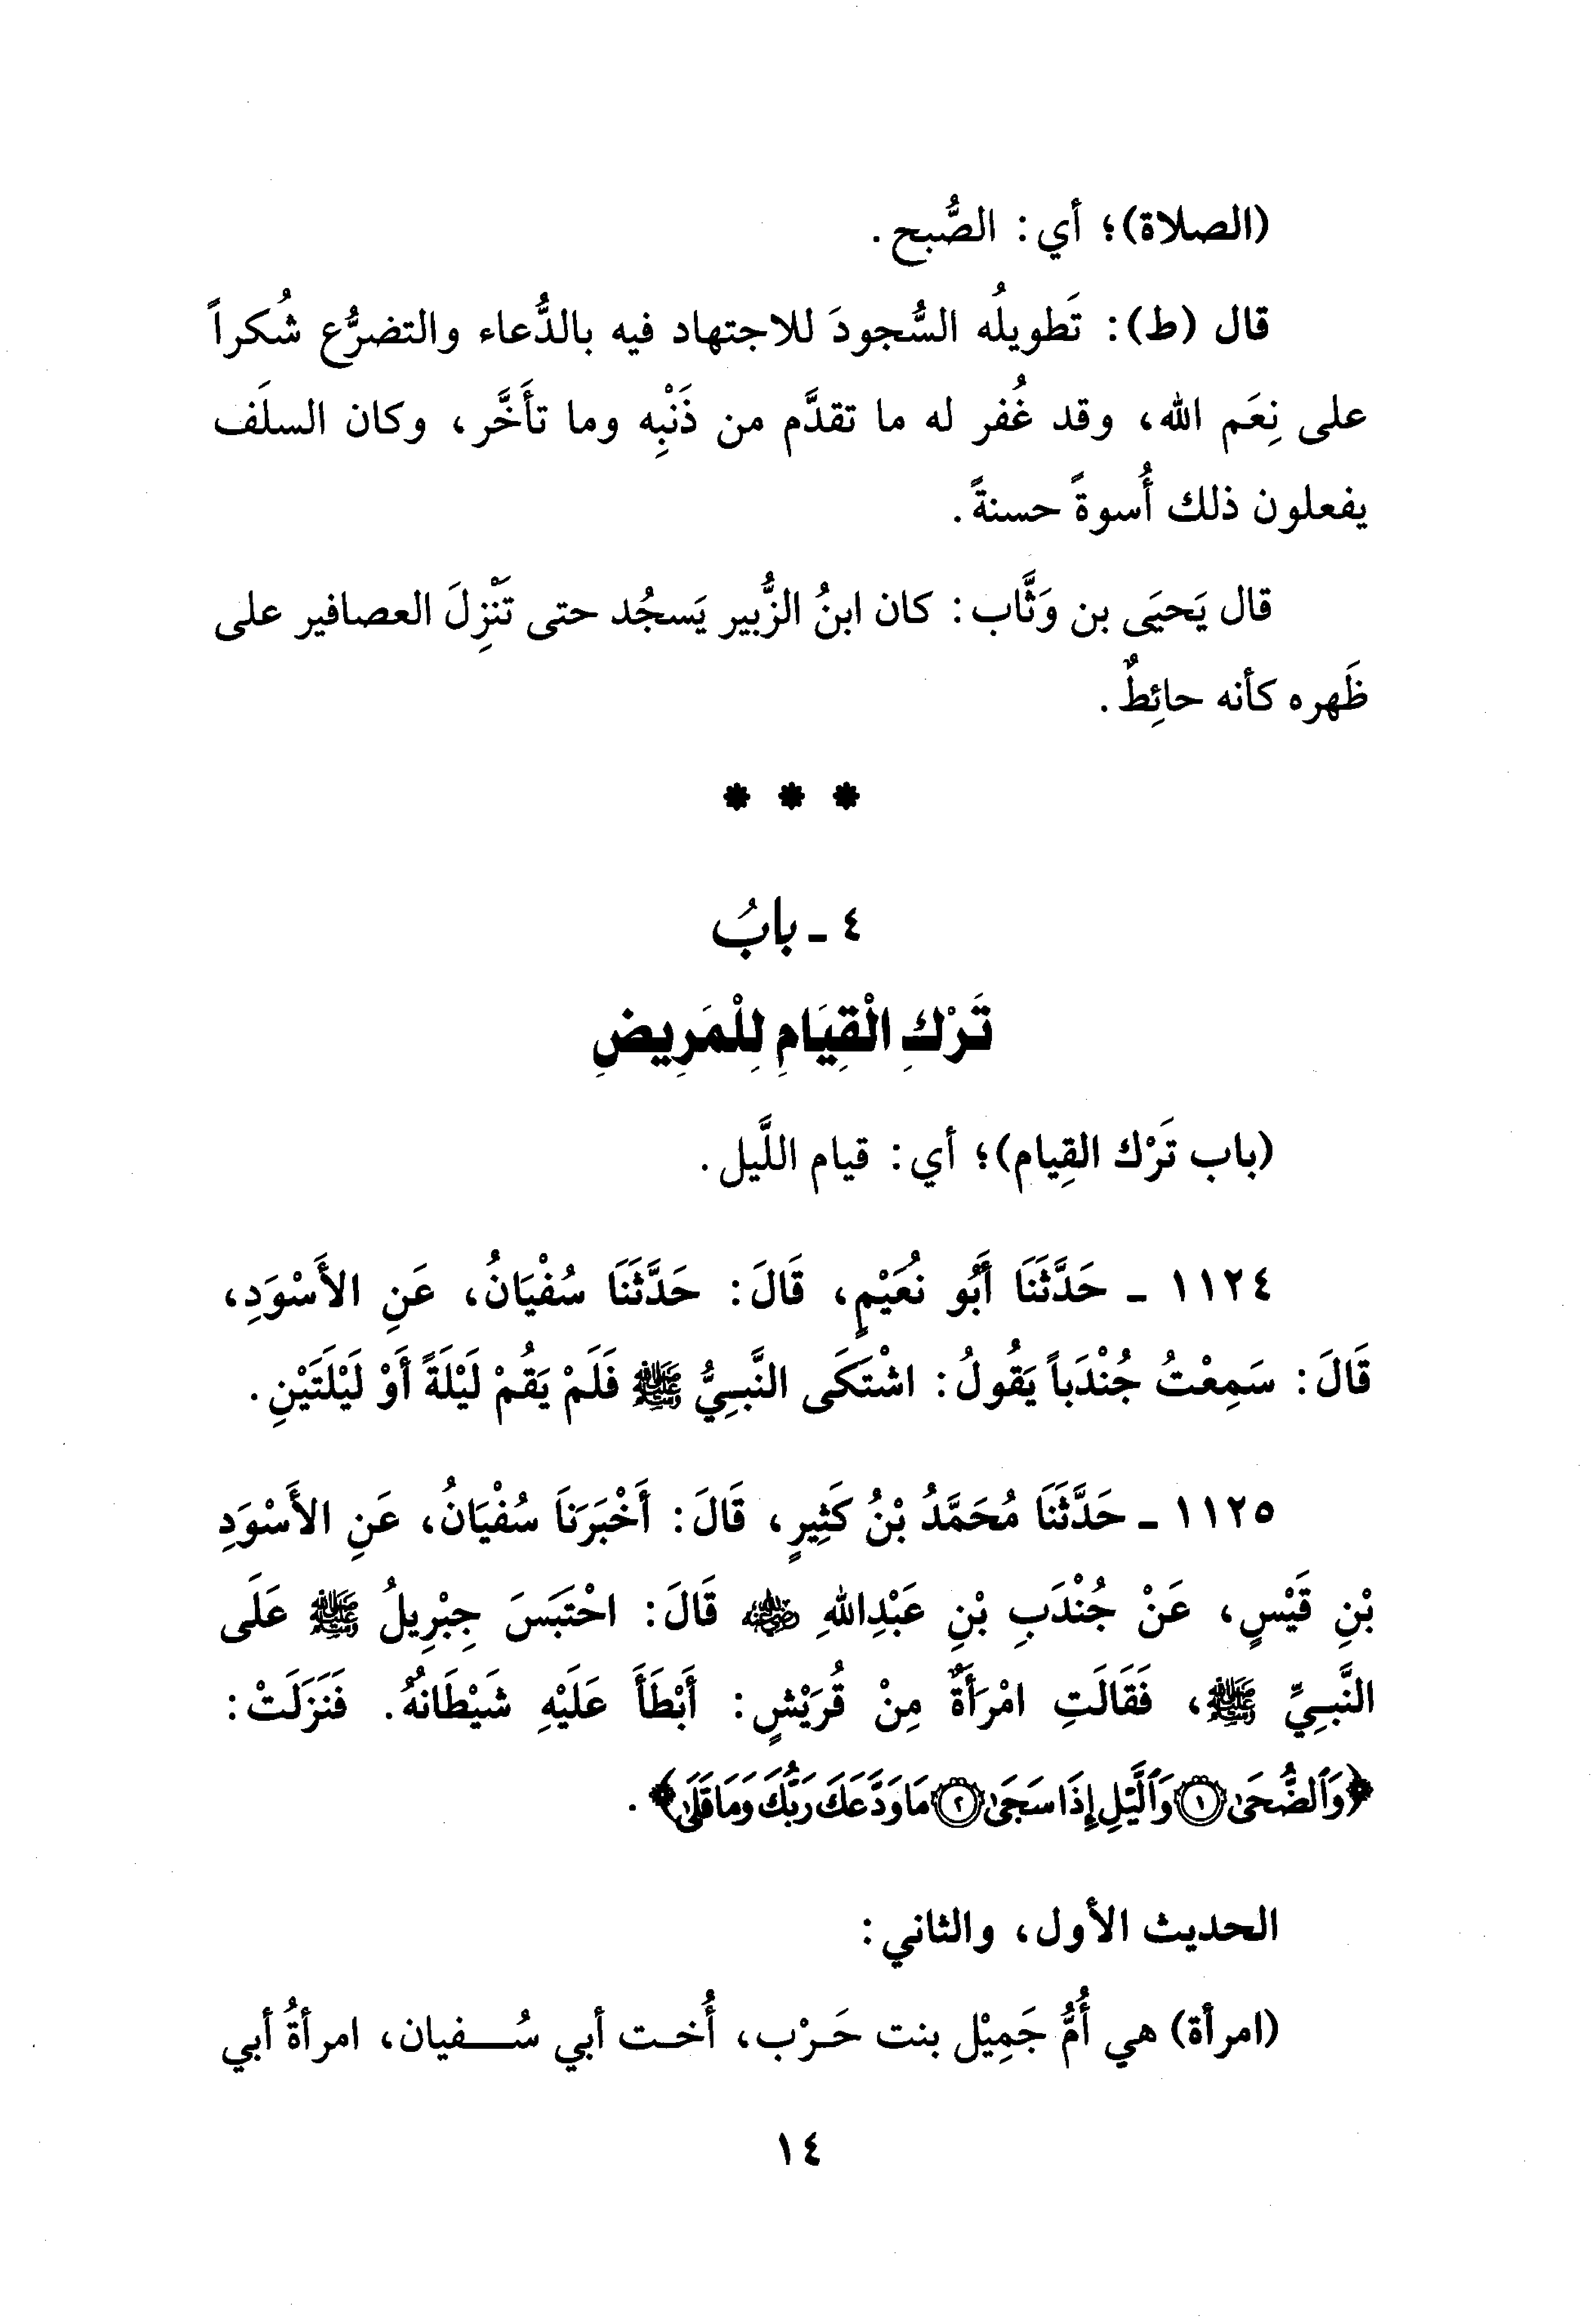 (الصلاة)؛ أي: الصُّبح.
قال (ط): تَطويلُه السُّجودَ للاجتهاد فيه بالدُّعاء والتضرُّع شُكراً
على نِعَم الله، وقد غُفر له ما تقدَّم من ذَنْبِه وما تأَخَّر، وكان السلَف
يفعلون ذلك أُسوةً حسنةً.
قال يَحيَى بن وَثَّاب: كان ابنُ الزُّبير يَسجُد حتى تَنْزِلَ العصافير على
ظَهره كأنه حائِطٌ.
* * *
٤ - بابُ
تَرْكِ الْقِيَامِ لِلْمَرِيضِ
(باب تَرْك القِيام)؛ أي: قيام اللَّيل.
١١٢٤ - حَدَّثَنَا أَبُو نُعَيْمٍ، قَالَ: حَدَّثَنَا سُفْيَانُ، عَنِ الأَسْوَدِ،
قَالَ: سَمِعْتُ جُنْدَباً يَقُولُ: اشْتَكَى النَّبِيُّ ﷺ فَلَمْ يَقُمْ لَيْلَةً أَوْ لَيْلَتَيْنِ.
١١٢٥ - حَدَّثَنَا مُحَمَّدُ بْنُ كَثِيرٍ، قَالَ: أَخْبَرَنَا سُفْيَانُ، عَنِ الأَسْوَدِ
بْنِ قَيْسٍ، عَنْ جُنْدَبِ بْنِ عَبْدِاللهِ ﵁ قَالَ: احْتَبَسَ جِبْرِيلُ ﷺ عَلَى
النَّبِيِّ ﷺ، فَقَالَتِ امْرَأَةٌ مِنْ قُرَيْشٍ: أَبْطَأَ عَلَيْهِ شَيْطَانُهُ. فَنَزَلَتْ:
﴿وَٱلضُّحَىٰ ۝١ وَٱلَّيْلِ إِذَا سَجَىٰ ۝٢ مَا وَدَّعَكَ رَبُّكَ وَمَا قَلَىٰ﴾.
الحديث الأول، والثاني:
(امرأة) هي أُمُّ جَمِيْل بنت حَرْب، أُخت أبي سُفيان، امرأةُ أبي
١٤